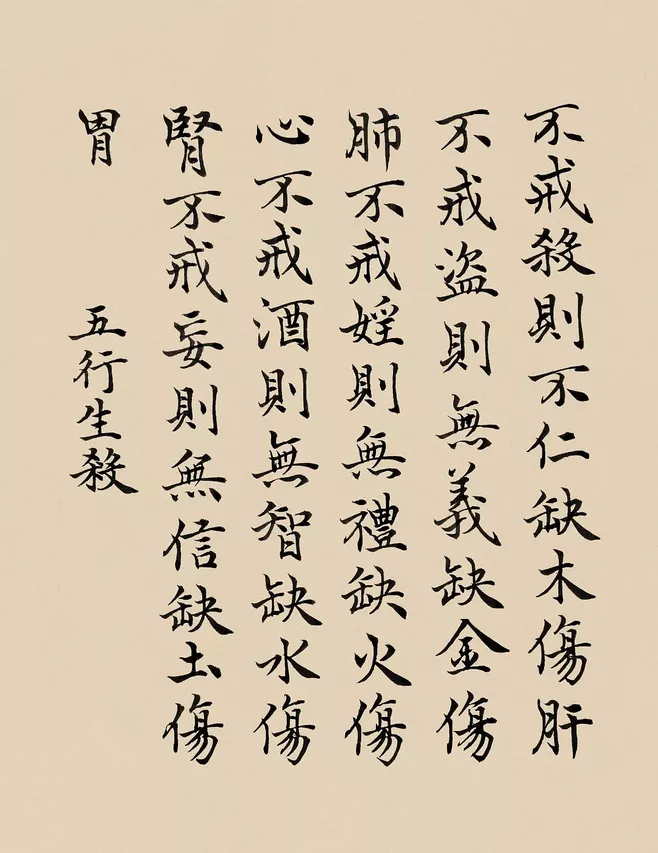 不戒殺則不仁缺木傷肝
不戒盜則無義缺金傷
肺不戒婬則無禮缺火傷
心不戒酒則無智缺水傷
腎不戒妄則無信缺土傷
胃
五行生殺